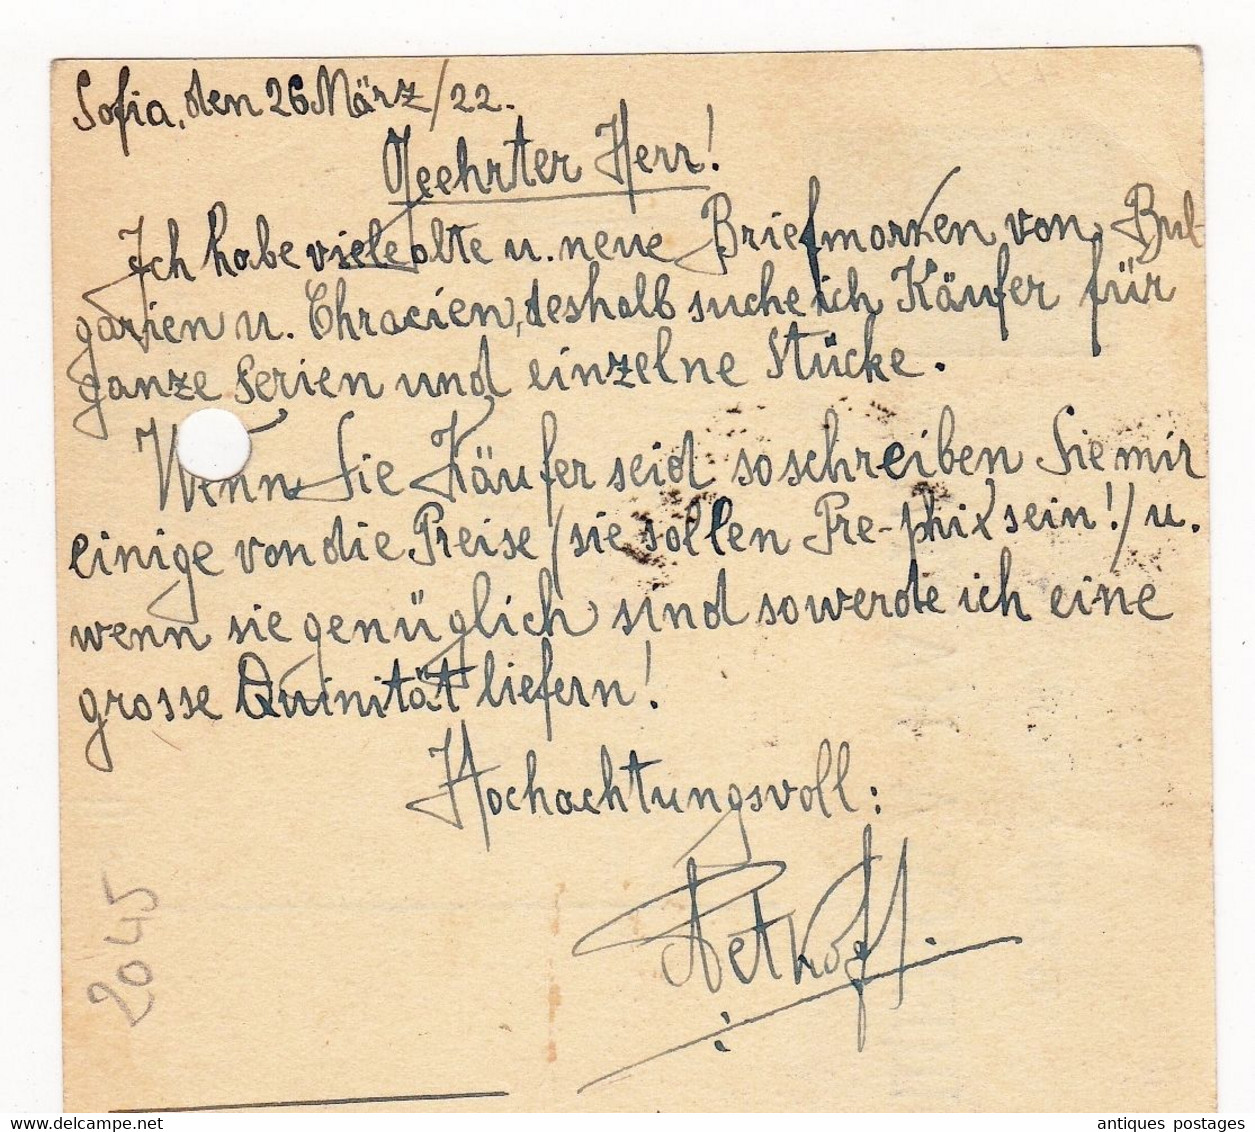 Sofia, den 26 März/22.
Geehrter Herr!
Ich habe viele alte u. neue Briefmarken von Bul-
garien u. Thracien, deshalb suche ich Käufer für
ganze Serien und einzelne Stücke.
Wenn Sie Käufer seid so schreiben Sie mir
einige von die Preise (sie sollen Pre-phix sein!) u.
wenn sie genüglich sind so werde ich eine
grosse Quinität liefern!
Hochachtungsvoll:
Petkoff.
2045
antiques postages